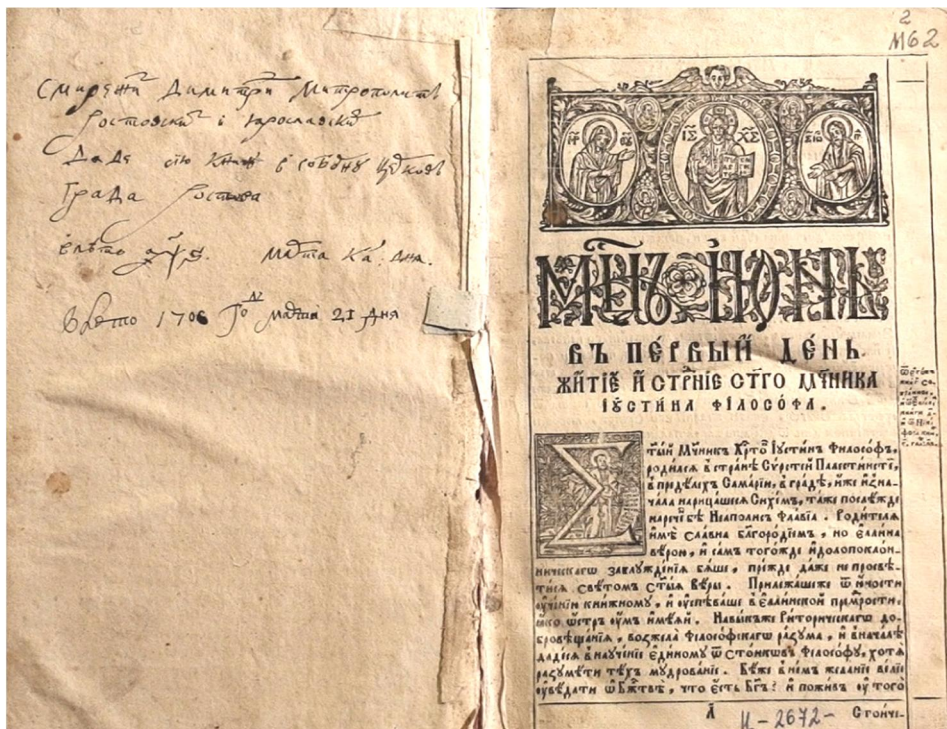 Смирений Димитрий Митрополитъ
Ростовский і Ярославский
Даде сію в соборну церковъ
Града Ростова
March ка҃ дня.
В лето 1706 го марта 21 дня
2
М62
ІС ХС
МЦЪ ІЮНЬ
ВЪ ПЕ́РВЫЙ ДЕ́НЬ.
ЖИТІЕ И СТР҇НІЕ СТ҃ГО МЧ҃НИКА
ІУСТИ́НА ФІЛОСО́ФА.
Ст҃ый Мч҃никъ Хр҇то Іустинъ Философъ,
родился в странѣ Сѵрстей Палестинстѣ,
в предѣлехъ Самаріи, в градѣ, иже изна-
чала нарицашеся Сихемъ, таже послѣжде
нарече бѣ Неаполисъ Флавіа . Родителя
имѣ славна благородіемъ , но еллина
вѣрою, и самъ тогожде идолопоклон-
ническагѡ заблужденія бяше , прежде даже не просвѣ-
тися свѣтомъ ст҃ыя вѣры . Прилежашеже ѿ юности
ученію книжному , и успѣваше в еллинской премⷣрости,
ꙗко остръ умъ имѣяй . Навыкъже Риторическагѡ до-
бровѣщанія , возжела Философскагѡ разума , и вначалѣ
дадеся в наученіе единому ѿ Стоиковъ Философу, хотя
разумѣти тѣхъ мудрованіе . Бѣже в немъ желаніе веліе
увѣдати ѡ Бж҇твѣ, что есть Бг҃ъ ? и поживъ у того
А
Стоиче-
И - 2672 -